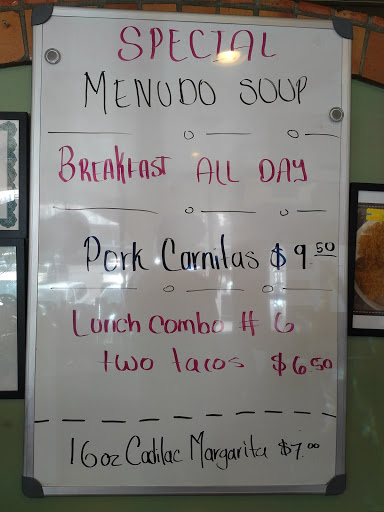 SPECIAL
MENUDO SOUP
BREAKFAST ALL DAY
Pork Carnitas $9.50
Lunch Combo # 6
two tacos $6.50
16oz Cadilac Margarita $7.00